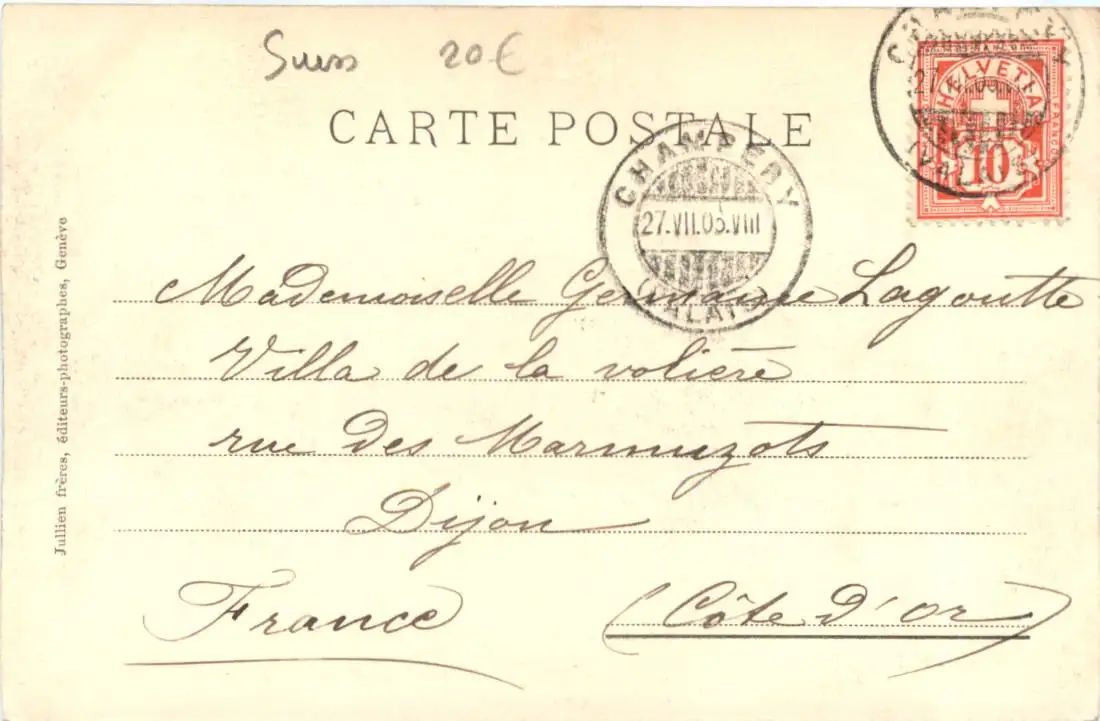 Suiss 20€
CARTE POSTALE
HELVETIA
FRANCO
10
CHAMPÉRY
27.VII.05.VIII
(VALAIS)
CHAMPÉRY
27.VII.05.
(VALAIS)
Mademoiselle Germaine Lagoutte
Villa de la volière
rue des Marmuzots
Dijon
France (Côte d'or)
Jullien frères, éditeurs-photographes, Genève